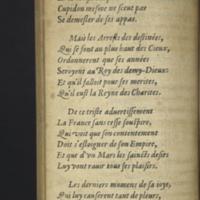 Cupidon mesme ne sceut pas
Se demesler de ses appas.
Mais les Arrests des destinées,
Qui se font au plus haut des Cieux,
Ordonnerent que ses années
Seroyent au Roy des demy-Dieux:
Et qu'il falloit pour ses merites,
Qu'il eust la Reyne des Charites.
De ce triste advertissement
La France sans cesse souspire,
Qui voit que son contentement
Doit s'esloigner de son Empire,
Et que d'un Mars les saincts desirs
Luy vont ravir tous ses plaisirs.
Les derniers momens de sa joye,
Qui luy causerent tant de pleurs,